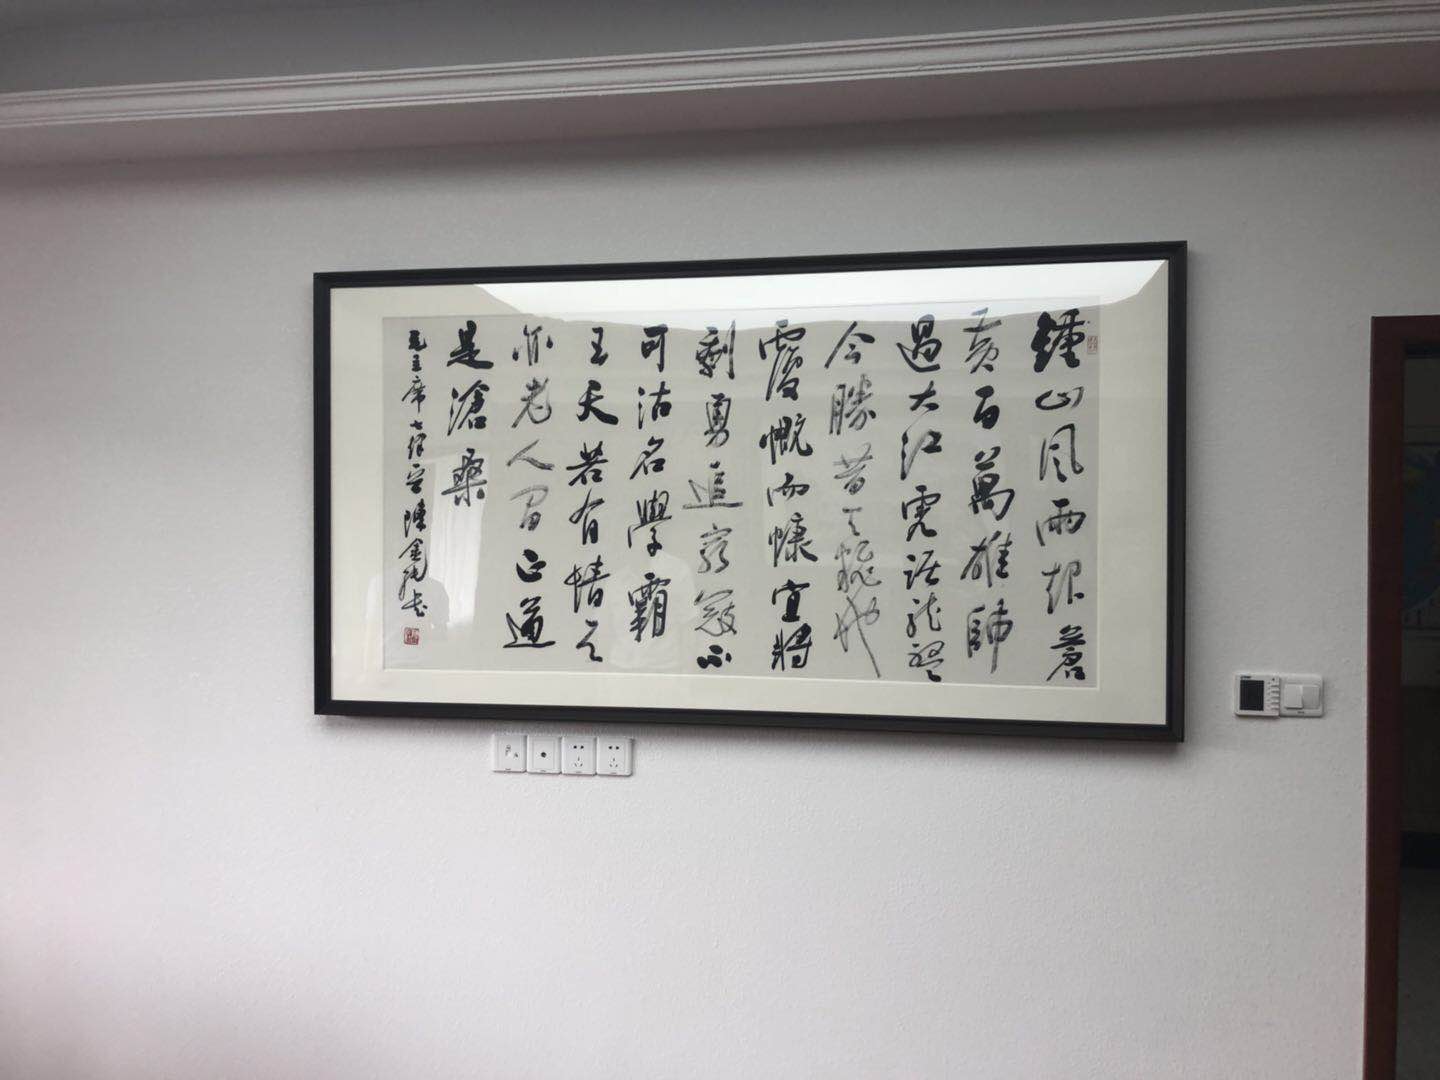 鍾山風雨起蒼
黃百萬雄師
過大江虎踞龍盤
今勝昔天翻地
覆慨而慷宜將
剩勇追窮寇不
可沽名學霸
王天若有情天
亦老人間正道
是滄桑
毛主席七律 陳金